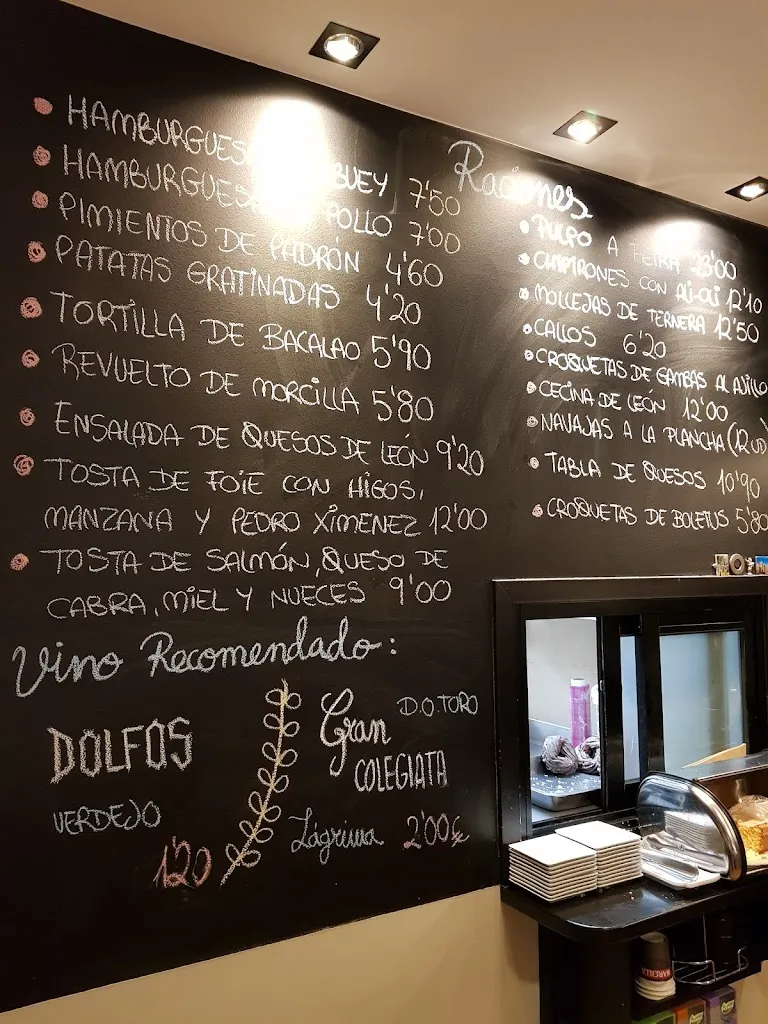 HAMBURGUES BUEY 7'50
HAMBURGUESA POLLO 7'00
PIMIENTOS DE PADRÓN 4'60
PATATAS GRATINADAS 4'20
TORTILLA DE BACALAO 5'90
REVUELTO DE MORCILLA 5'80
ENSALADA DE QUESOS DE LEÓN 9'20
TOSTA DE FOIE CON HIGOS,
MANZANA Y PEDRO XIMENEZ 12'00
TOSTA DE SALMÓN, QUESO DE
CABRA, MIEL Y NUECES 9'00
Vino Recomendado:
DOLFOS
VERDEJO
1'20
D.O.TORO
Gran
COLEGIATA
Lágrima 2'00€
Raciones
PULPO A FEIRA 13'00
CHIPIRONES CON ALI-OLI 12'10
MOLLEJAS DE TERNERA 12'50
CALLOS 6'20
CROQUETAS DE GAMBAS AL AJILLO
CECINA DE LEÓN 12'00
NAVAJAS A LA PLANCHA (12 UD)
TABLA DE QUESOS 10'90
CROQUETAS DE BOLETUS 5'80
MARCILLA